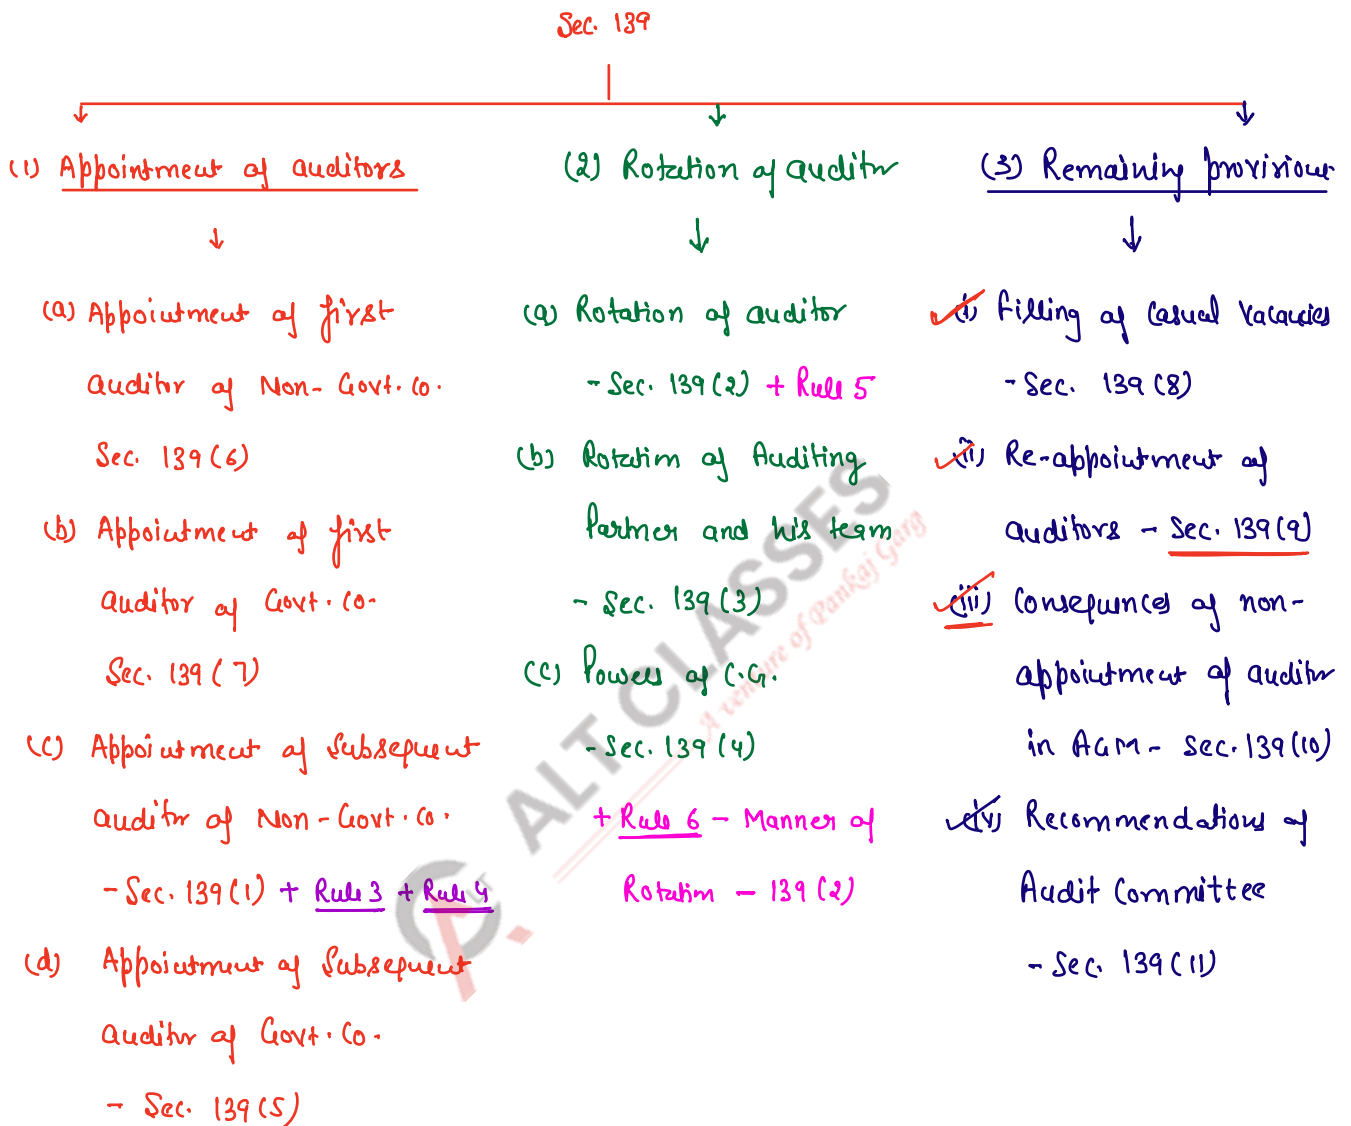 Sec. 139
(1) Appointment of auditors
(a) Appointment of first
auditor of Non-Govt. Co.
Sec. 139(6)
(b) Appointment of first
auditor of Govt. Co.
Sec. 139(7)
(c) Appointment of Subsequent
auditor of Non-Govt. Co.
- Sec. 139(1) + Rule 3 + Rule 4
(d) Appointment of Subsequent
auditor of Govt. Co.
- Sec. 139(5)
(2) Rotation of auditor
(a) Rotation of auditor
- Sec. 139(2) + Rule 5
(b) Rotation of Auditing
Partner and his team
- Sec. 139(3)
(c) Powers of C.G.
- Sec. 139(4)
+ Rule 6 - Manner of
Rotation - 139(2)
(3) Remaining provisions
(i) Filling of Casual Vacancies
- Sec. 139(8)
(ii) Re-appointment of
auditors - Sec. 139(9)
(iii) Consequences of non-
appointment of auditor
in AGM - Sec. 139(10)
(iv) Recommendations of
Audit Committee
- Sec. 139(11)
ALT CLASSES
A venture of Pankaj Garg